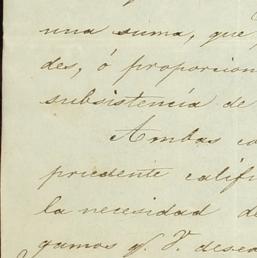 una suma, que
des, ó proporcion
subsistencia de
Ambas co
priedente califi
la necesidad de
gamos y V. desea